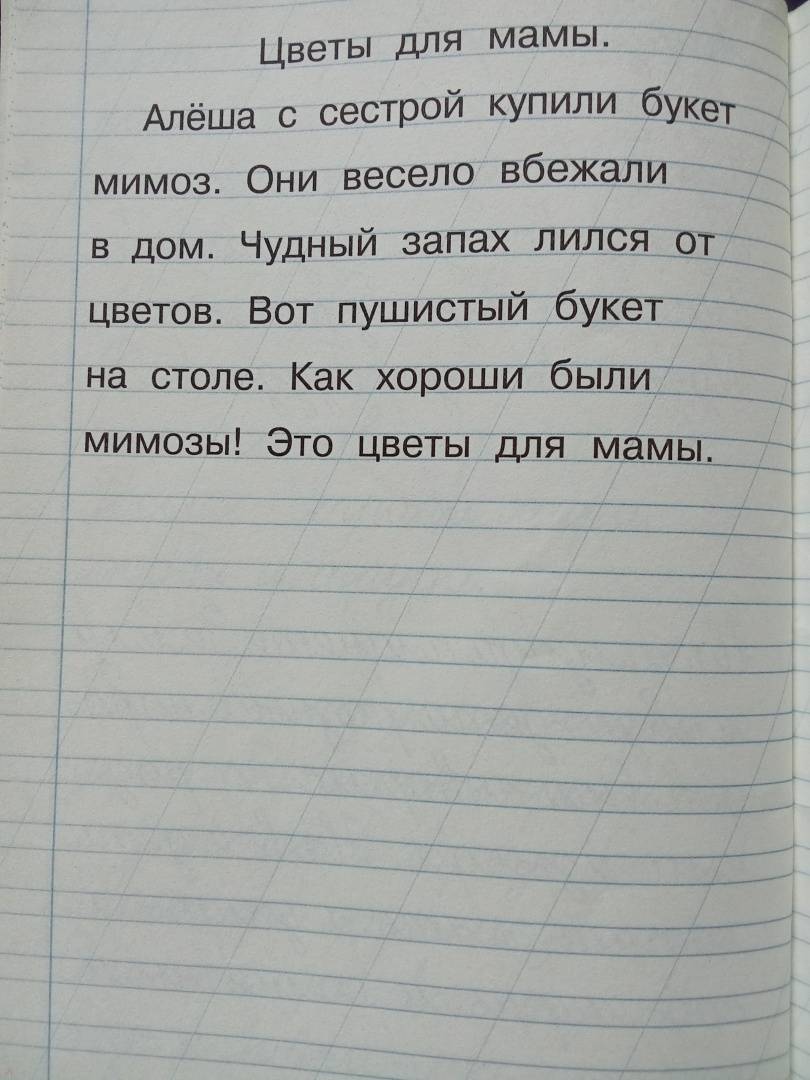 Цветы для мамы.
Алёша с сестрой купили букет
мимоз. Они весело вбежали
в дом. Чудный запах лился от
цветов. Вот пушистый букет
на столе. Как хороши были
мимозы! Это цветы для мамы.